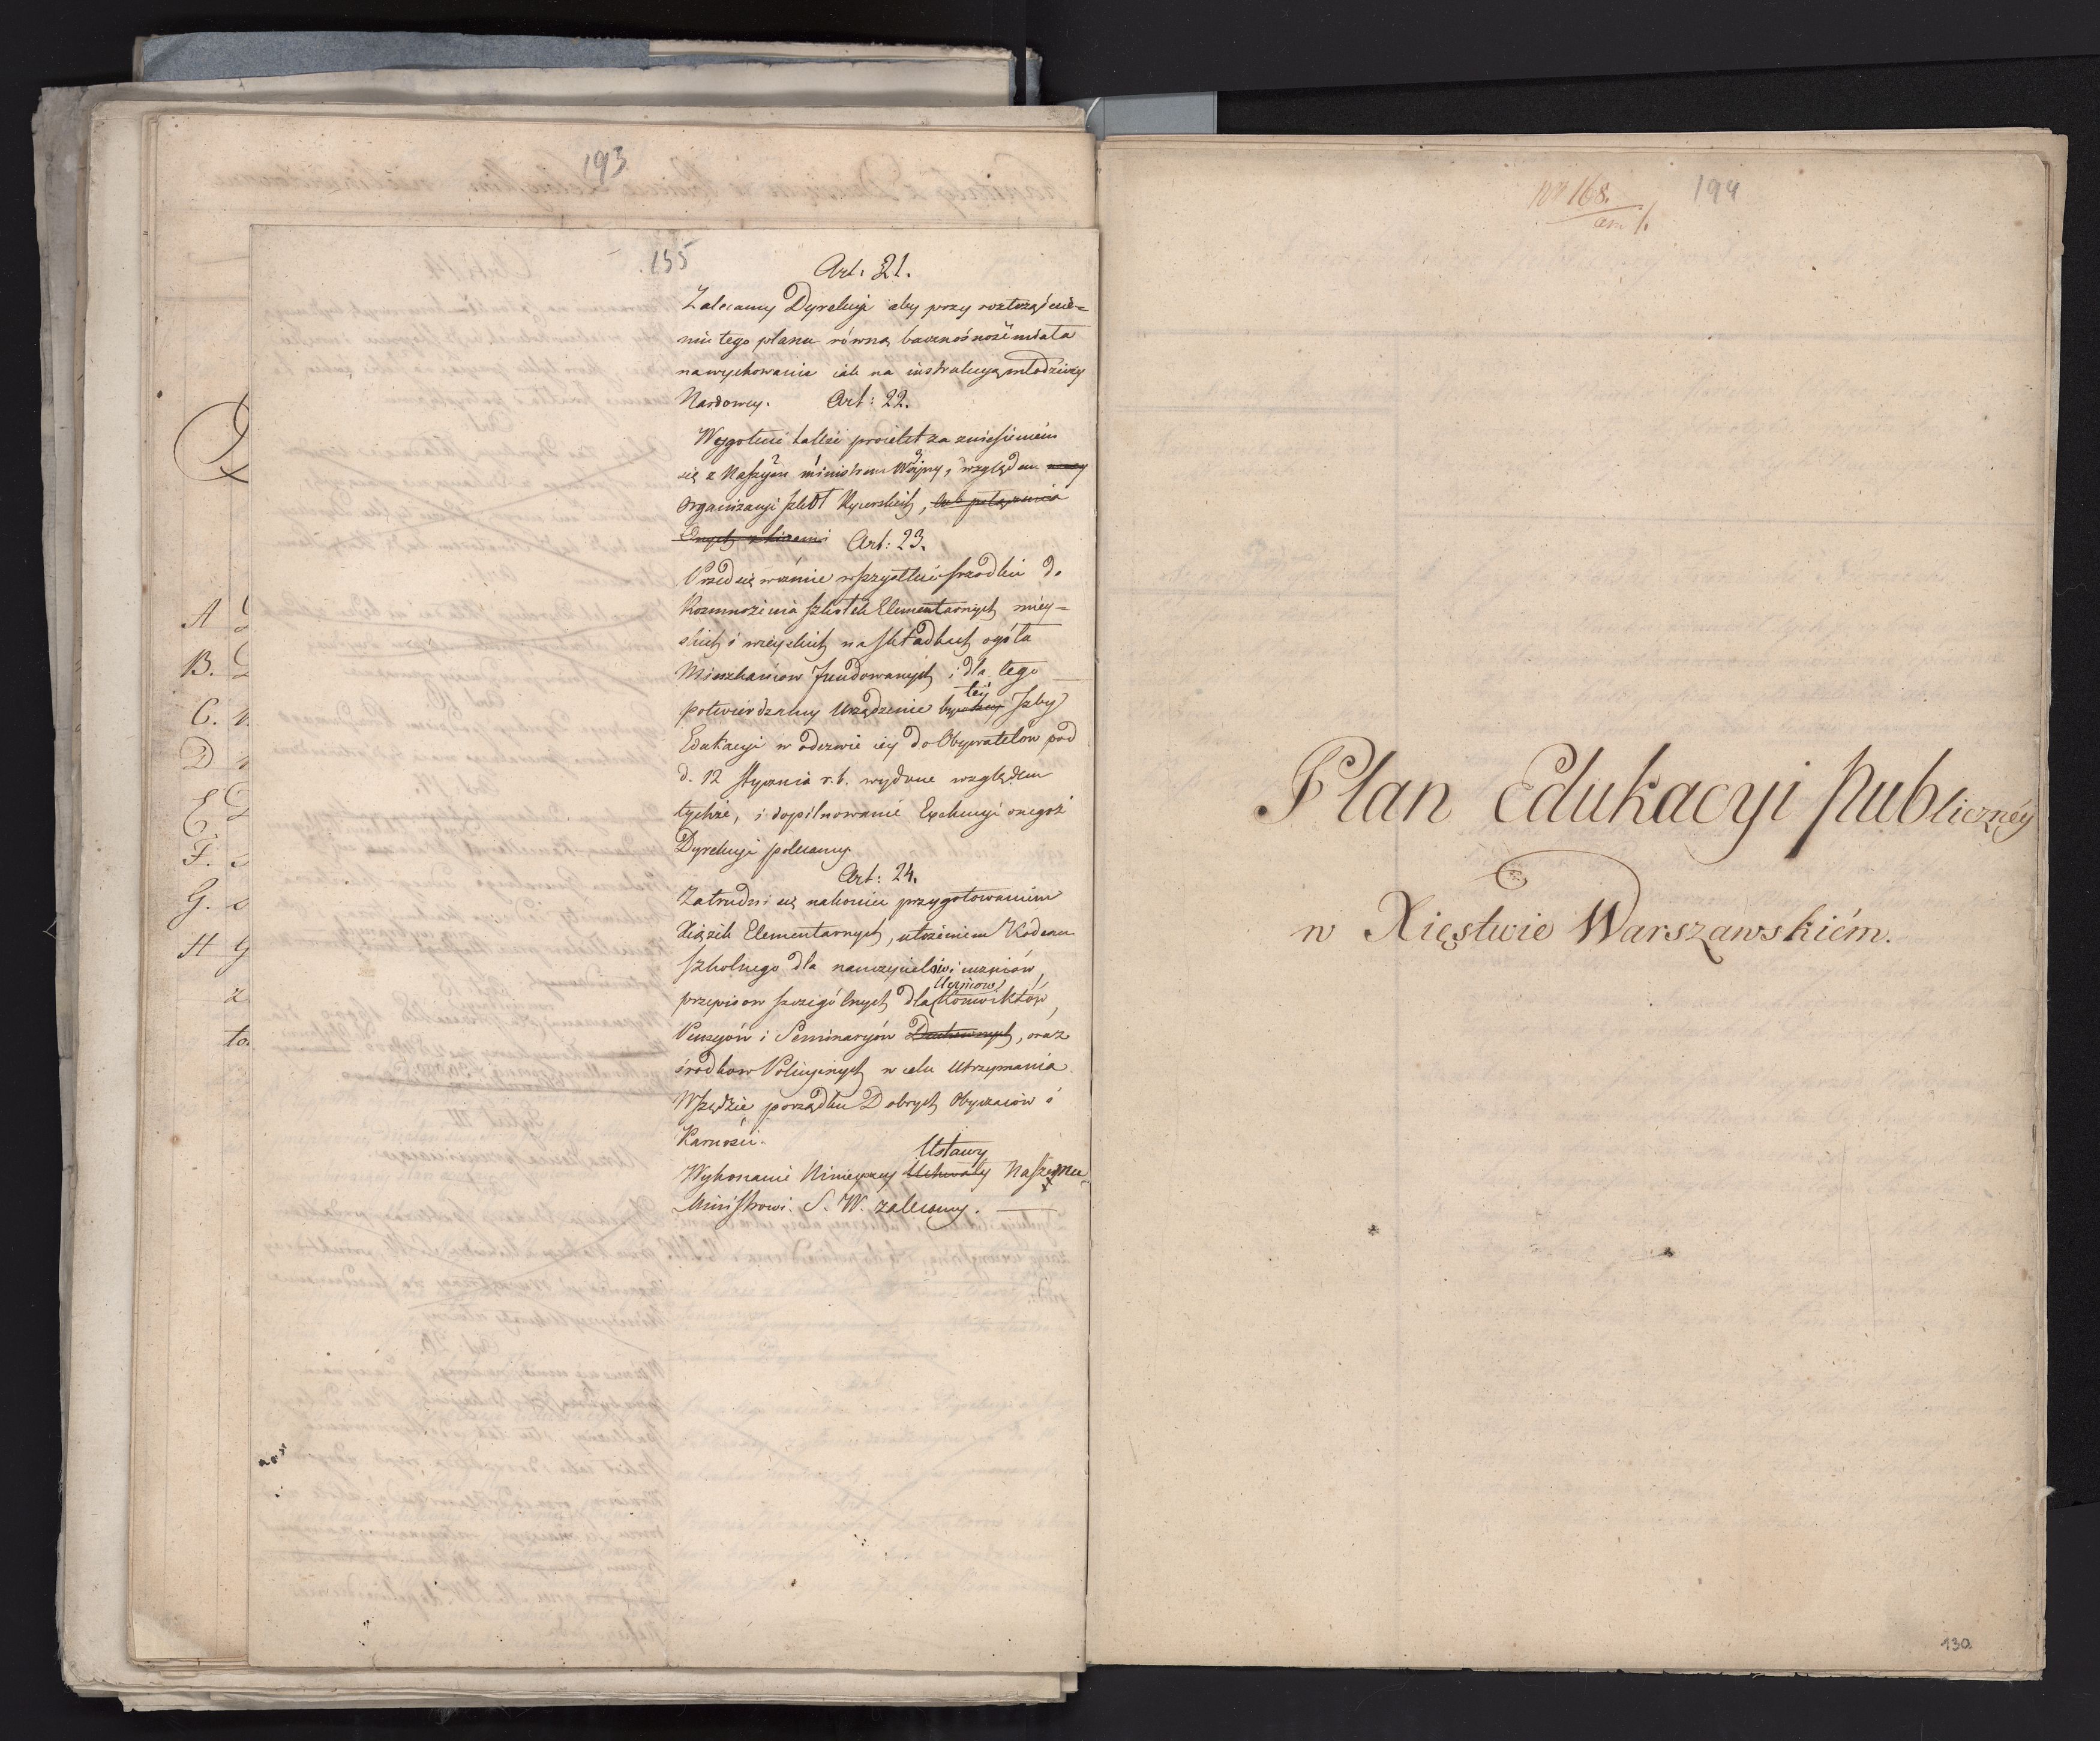 193
155
Art: 21.
Zalecamy Dyrekcyi aby przy roztrząśnie=
niu tego planu równą baczność miała
na wychowanie iak na instrukcyą młodzieży
Narodowey. Art: 22.
Wygotuie także proiekt za zniesieniem
się z Naszym ministrem Wojny, względem
Organizacyi szkół Rycerskich, lub połączenia
Onych z Liceami Art: 23.
Przedsięweźmie wszystkie srzodki do
Rozmnożenia szkołek Elementarnych miey=
skich i wieyskich na składkach ogółu
Mieszkańcow fundowanych i dla tego
potwierdzamy Urządzenie tey Izby
Edukacyi w odezwie iey do Obywatelow pod
d. 12 stycznia r. b. wydane względem
tychże, i dopilnowanie Exekucyi onegoż
Dyrekcyi polecamy.
Art: 24.
Zatrudni się nakoniec przygotowaniem
Xiążek Elementarnych, ułożeniem Kodexu
szkolnego dla nauczycielów i uczniów,
Uczniow
przepisow szczególnych dla Konwiktów,
Pensyów i Seminaryów Duchownych, oraz
środkow Policyinych w celu utrzymania
Wszędzie porządku Dobrych Obyczaiów i
Karności.
Ustawy
Wykonanie Ninieyszey Uchwały Naszemu
Ministrowi S. W. zalecamy.
A
B.
C.
D
E
F.
G.
H
to
No 168.
194
Plan Edukacyi Publicznéy
w Xięstwie Warszawskiém.
130